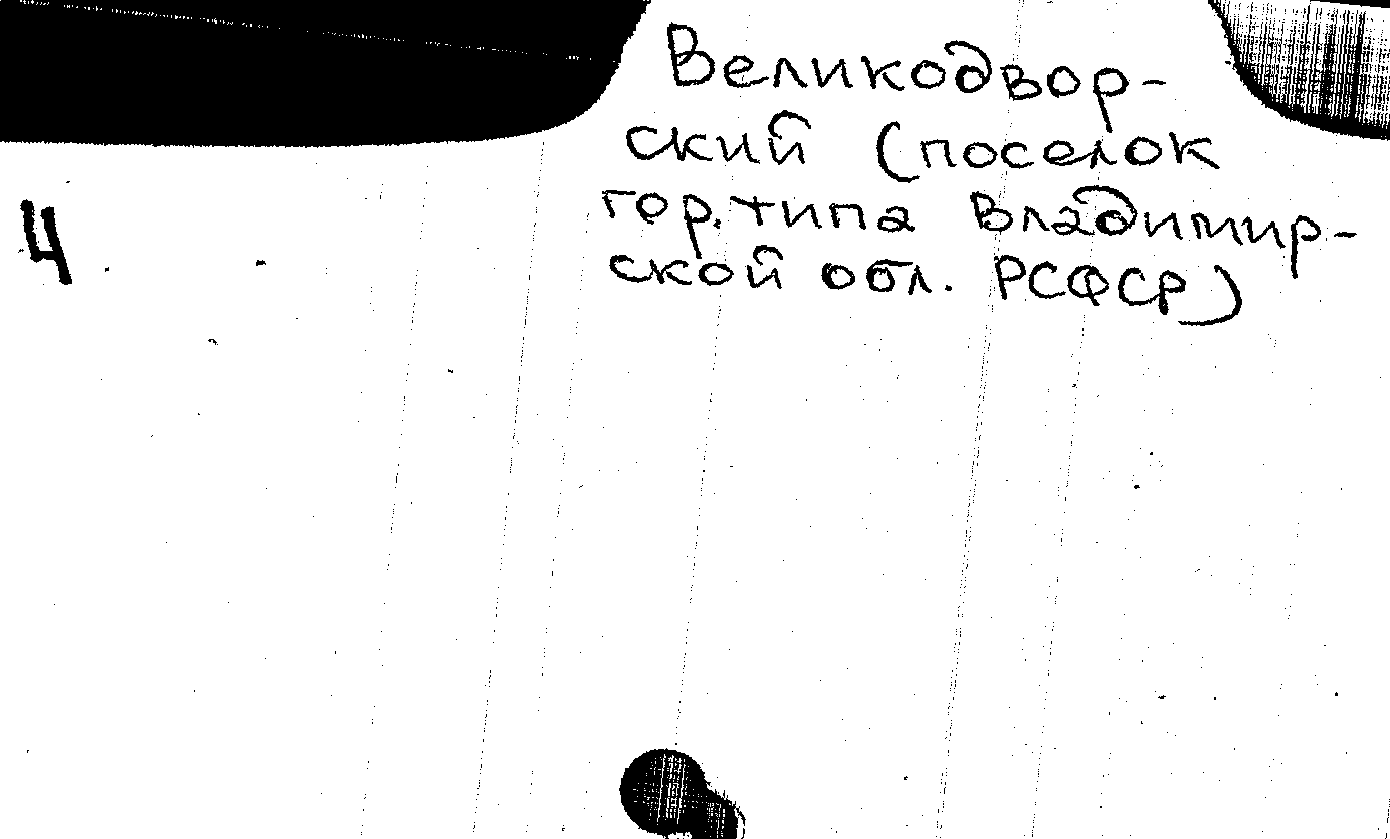 Великодвор-
ский (поселок
гор. типа Владимир-
ской обл. РСФСР)
4